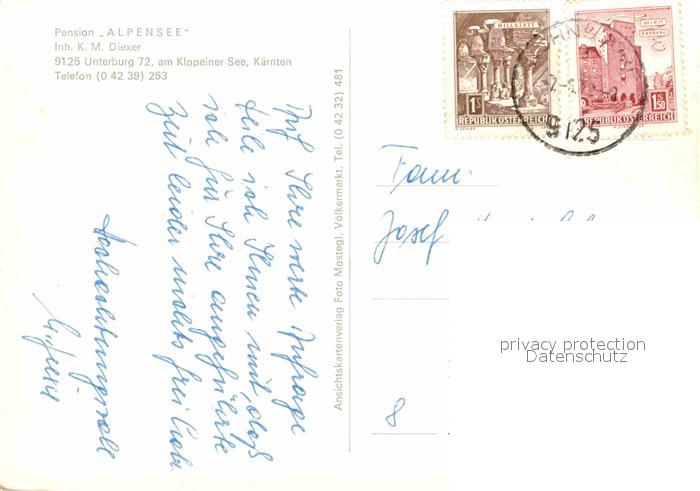 Pension „ALPENSEE"
Inh. K. M. Diexer
9125 Unterburg 72, am Klopeiner See, Kärnten
Telefon (0 42 39) 253
Auf Ihre werte Anfrage
teile ich Ihnen mit, daß
ich für Ihre angeführte
Zeit leider nichts frei habe.
Hochachtungsvoll
Ansichtskartenverlag Foto Mostegl, Völkermarkt, Tel. (0 42 32) 481
MILLSTATT
1S
REPUBLIK ÖSTERREICH
WIEN
ERDBERG
1S50
REPUBLIK ÖSTERREICH
9125
Fam.
Josef
8
privacy protection
Datenschutz